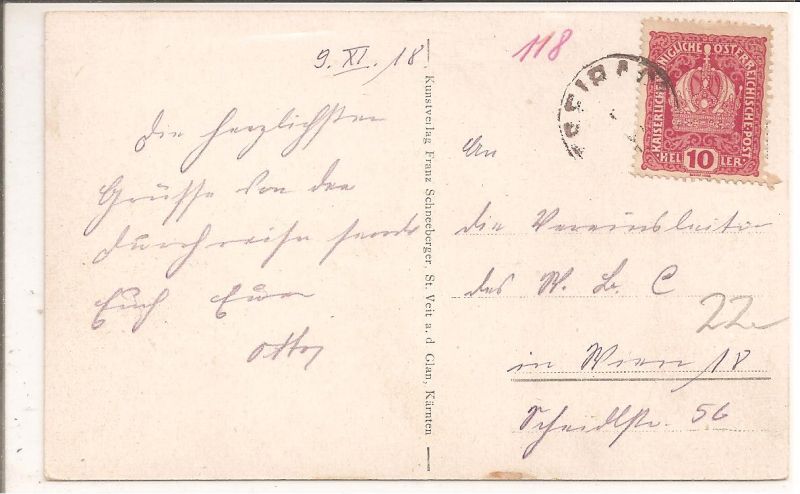 9. XI. 18
Die herzlichsten
Grüsse von der
Durchreise sendet
Euch Euer
Otto
Kunstverlag Franz Schneeberger, St. Veit a. d. Glan, Kärnten
118
KAISERLICHE KÖNIGLICHE ÖSTERREICHISCHE POST
HELLER
10
An
die Vereinsleitung
des W. B. C
22
in Wien 18
Scheidlstr. 56